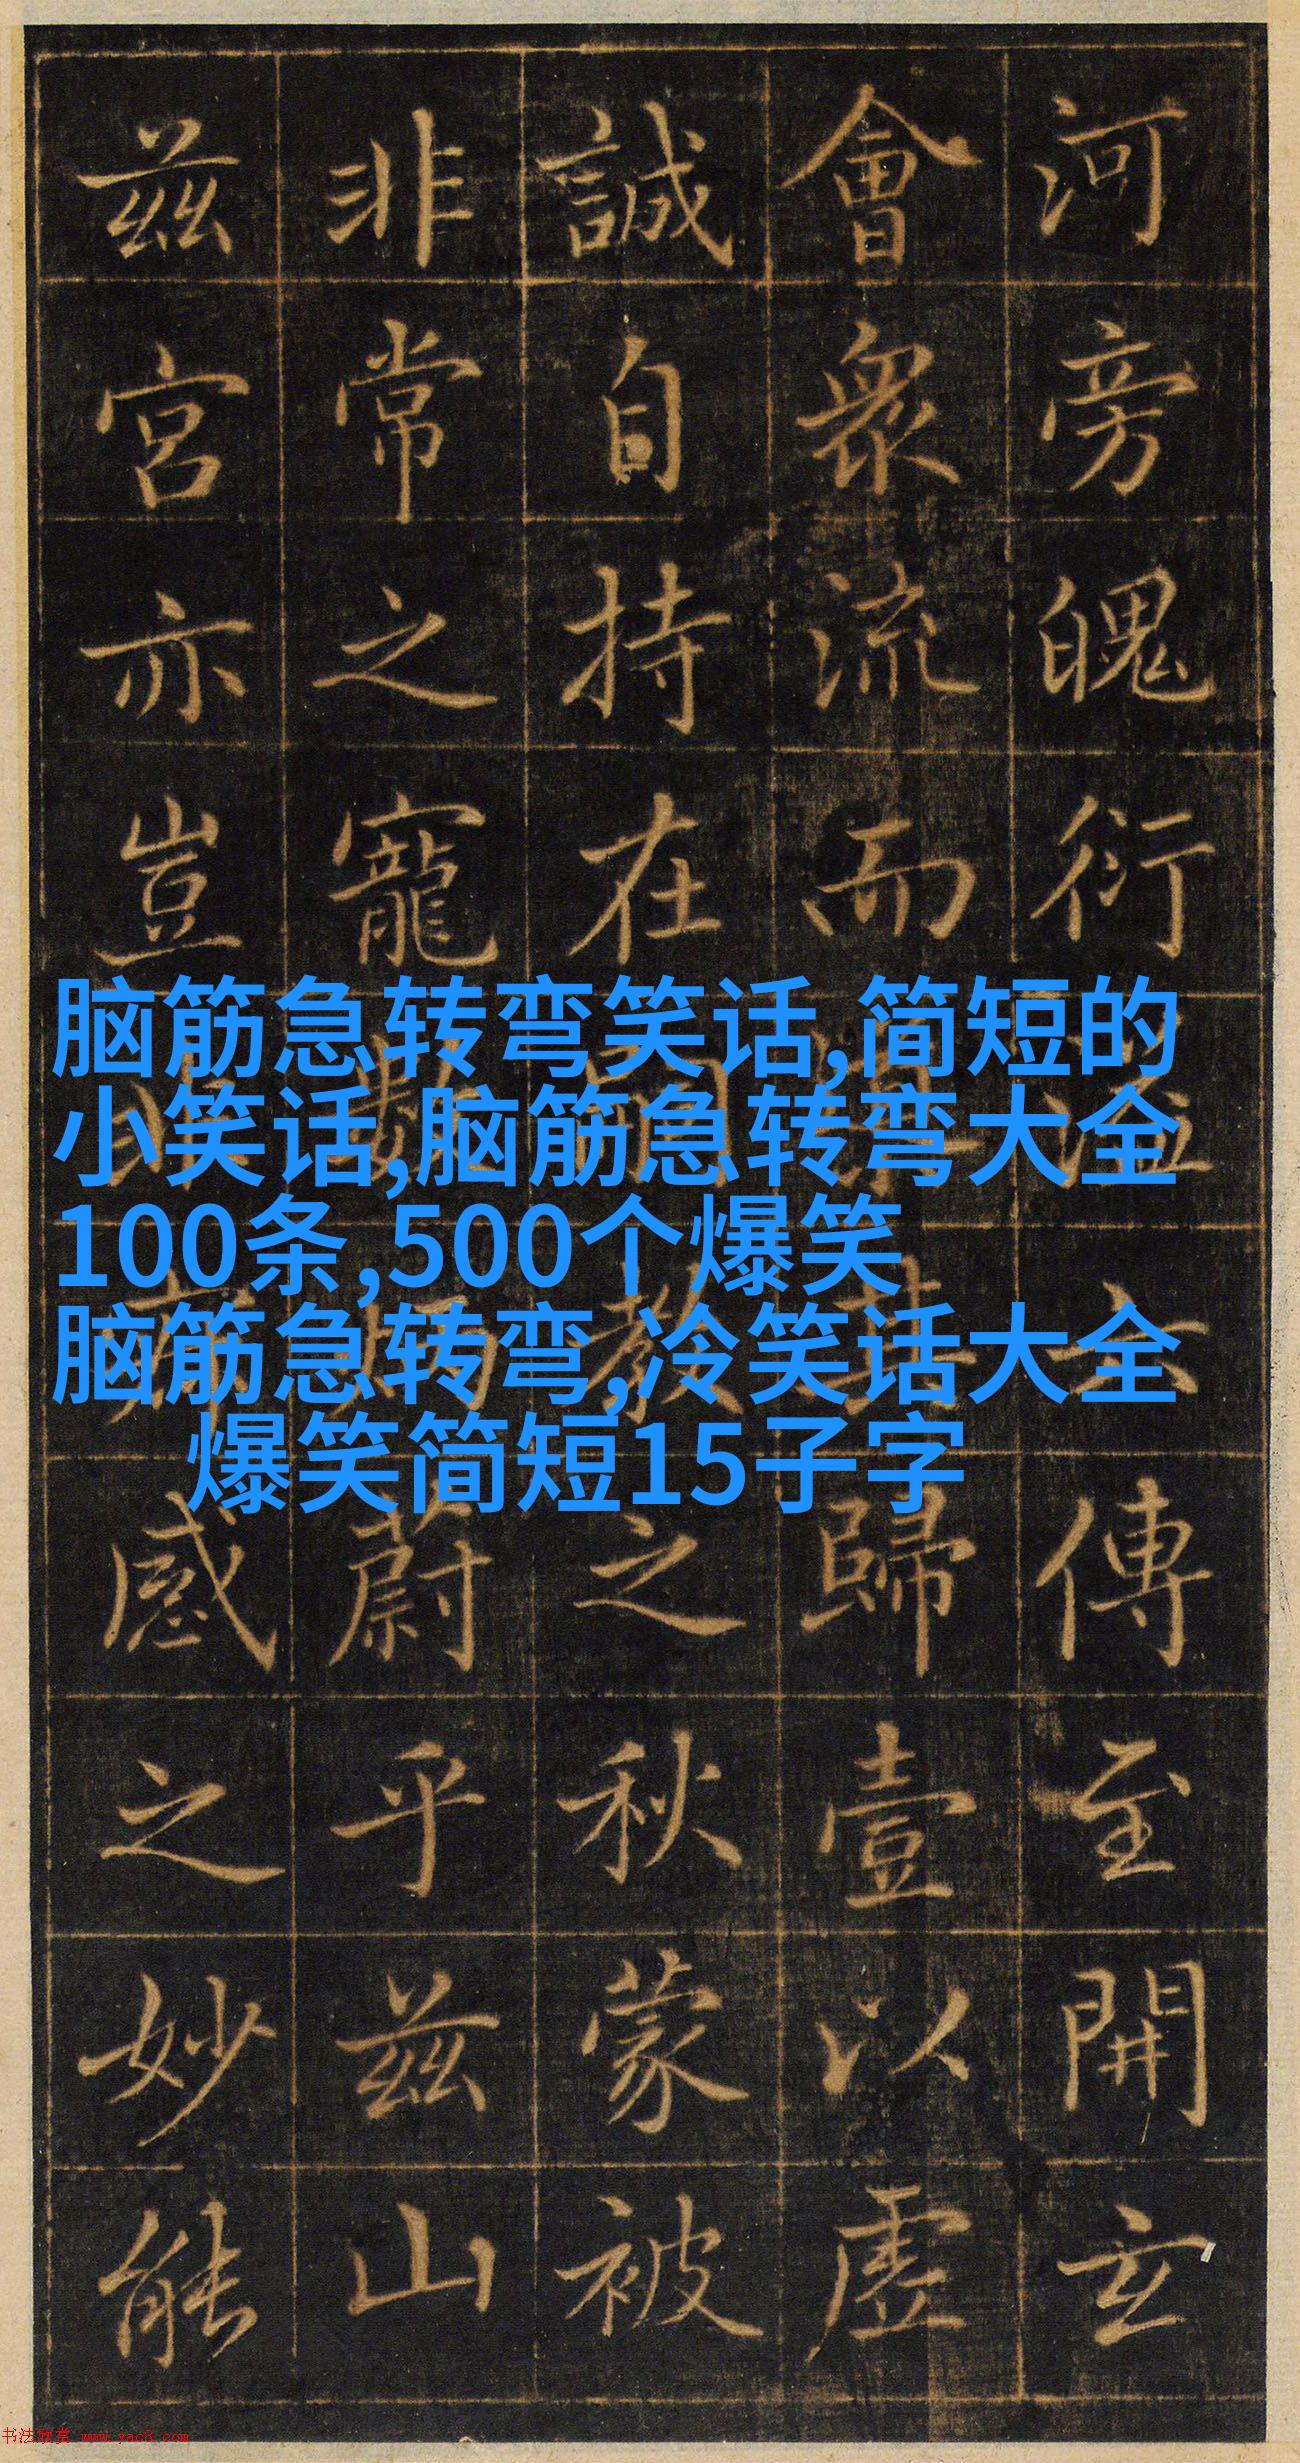 河旁魄衍傳至開玄
會眾流而歸壹以虛
誠自持在教之秋蒙被
非常之寵蔚乎茲山
茲宮亦豈感之妙能
脑筋急转弯笑话,简短的
小笑话,脑筋急转弯大全
100条,500个爆笑
脑筋急转弯,冷笑话大全
爆笑简短15子字
书法欣赏 www.yac8.com